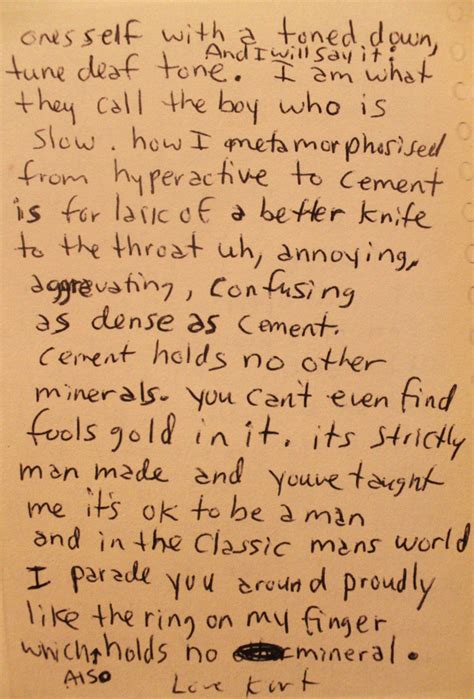 ones self with a toned down,
And I will say it:
tune deaf tone. I am what
they call the boy who is
slow. how I metamorphosised
from hyperactive to cement
is for lack of a better knife
to the throat uh, annoying,
aggrevating, confusing
as dense as cement.
cement holds no other
minerals. you can't even find
fools gold in it. its strictly
man made and youve taught
me it's ok to be a man
and in the classic mans world
I parade you around proudly
like the ring on my finger
which holds no mineral.
Also
Love Kurt